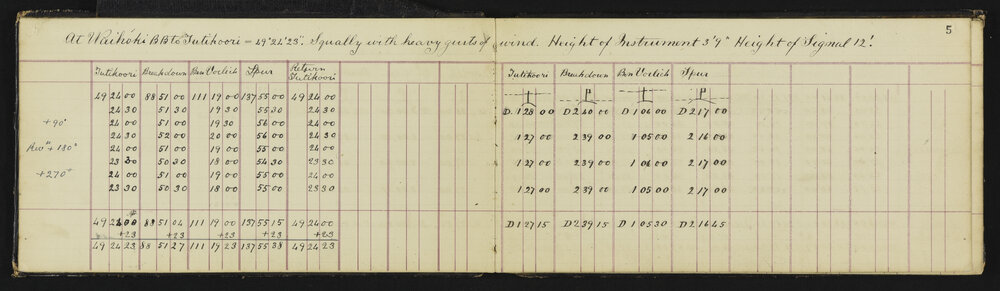 5
At Waikohi BB to Tutikoori = 49° 24' 23". Squally with heavy gusts of wind. Height of Instrument 3' 9" Height of Signal 12'.
Tutikoori Breakdown Ben Vorlich Spur Return Tutikoori Tutikoori Breakdown Ben Vorlich Spur
49 24 00 88 51 00 111 19 00 137 55 00 49 24 00
24 30 51 30 19 30 55 30 24 30 D 1 28 00 D 2 40 00 D 1 06 00 D 2 17 00
+90° 24 00 51 00 19 30 56 00 24 00
24 30 52 00 20 00 56 00 24 30 1 27 00 2 39 00 1 05 00 2 16 00
Rev" + 180° 24 00 51 00 19 00 55 00 24 00
23 30 50 30 18 00 54 30 23 30 1 27 00 2 39 00 1 06 00 2 17 00
+270° 24 00 51 00 19 00 55 00 24 00
23 30 50 30 18 00 55 00 23 30 1 27 00 2 39 00 1 05 00 2 17 00
49 24 00 88 51 04 111 19 00 137 55 15 49 24 00 D 1 27 15 D 2 39 15 D 1 05 30 D 2 16 45
+23 +23 +23 +23 +23
49 24 23 88 51 27 111 19 23 137 55 38 49 24 23